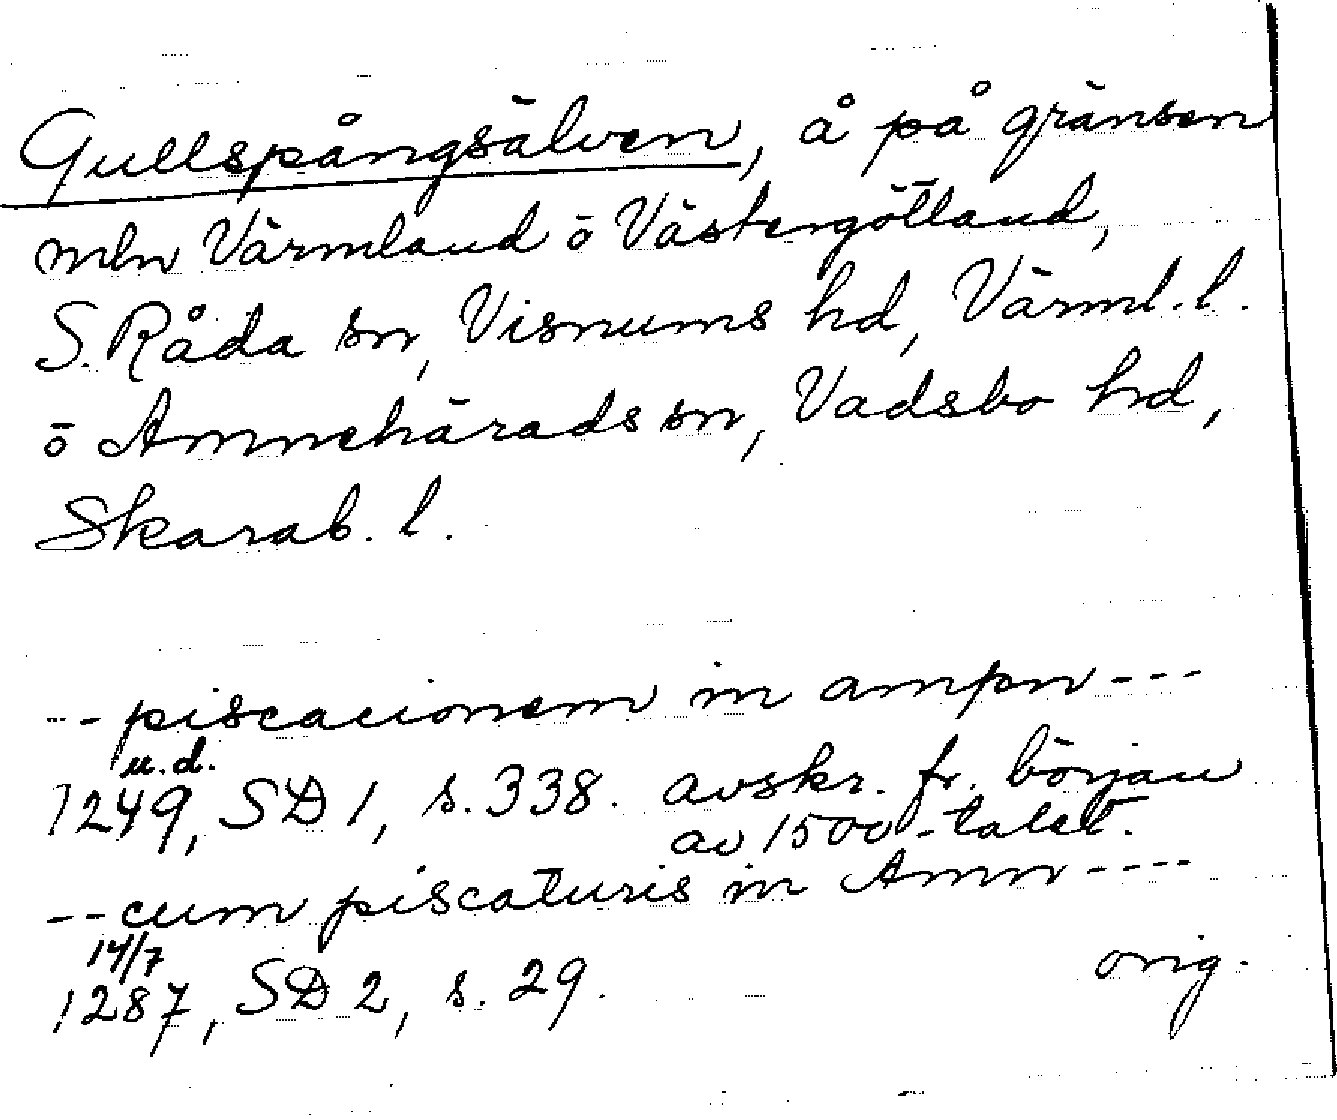 Gullspångsälven, å på gränsen
mln Värmland ō Västergötland,
S. Råda sn, Visnums hd, Värml. l.
ō Amnehärads sn, Vadsbo hd,
Skarab. l.
-- piscacionem in ampn ---
u.d.
1249, SD 1, s. 338. avskr. fr. början
av 1500-talet.
-- cum piscaturis in Amn ----
14/7
1287, SD 2, s. 29. orig.